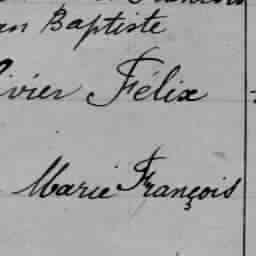 an Baptiste
ivier Félix
Marie François